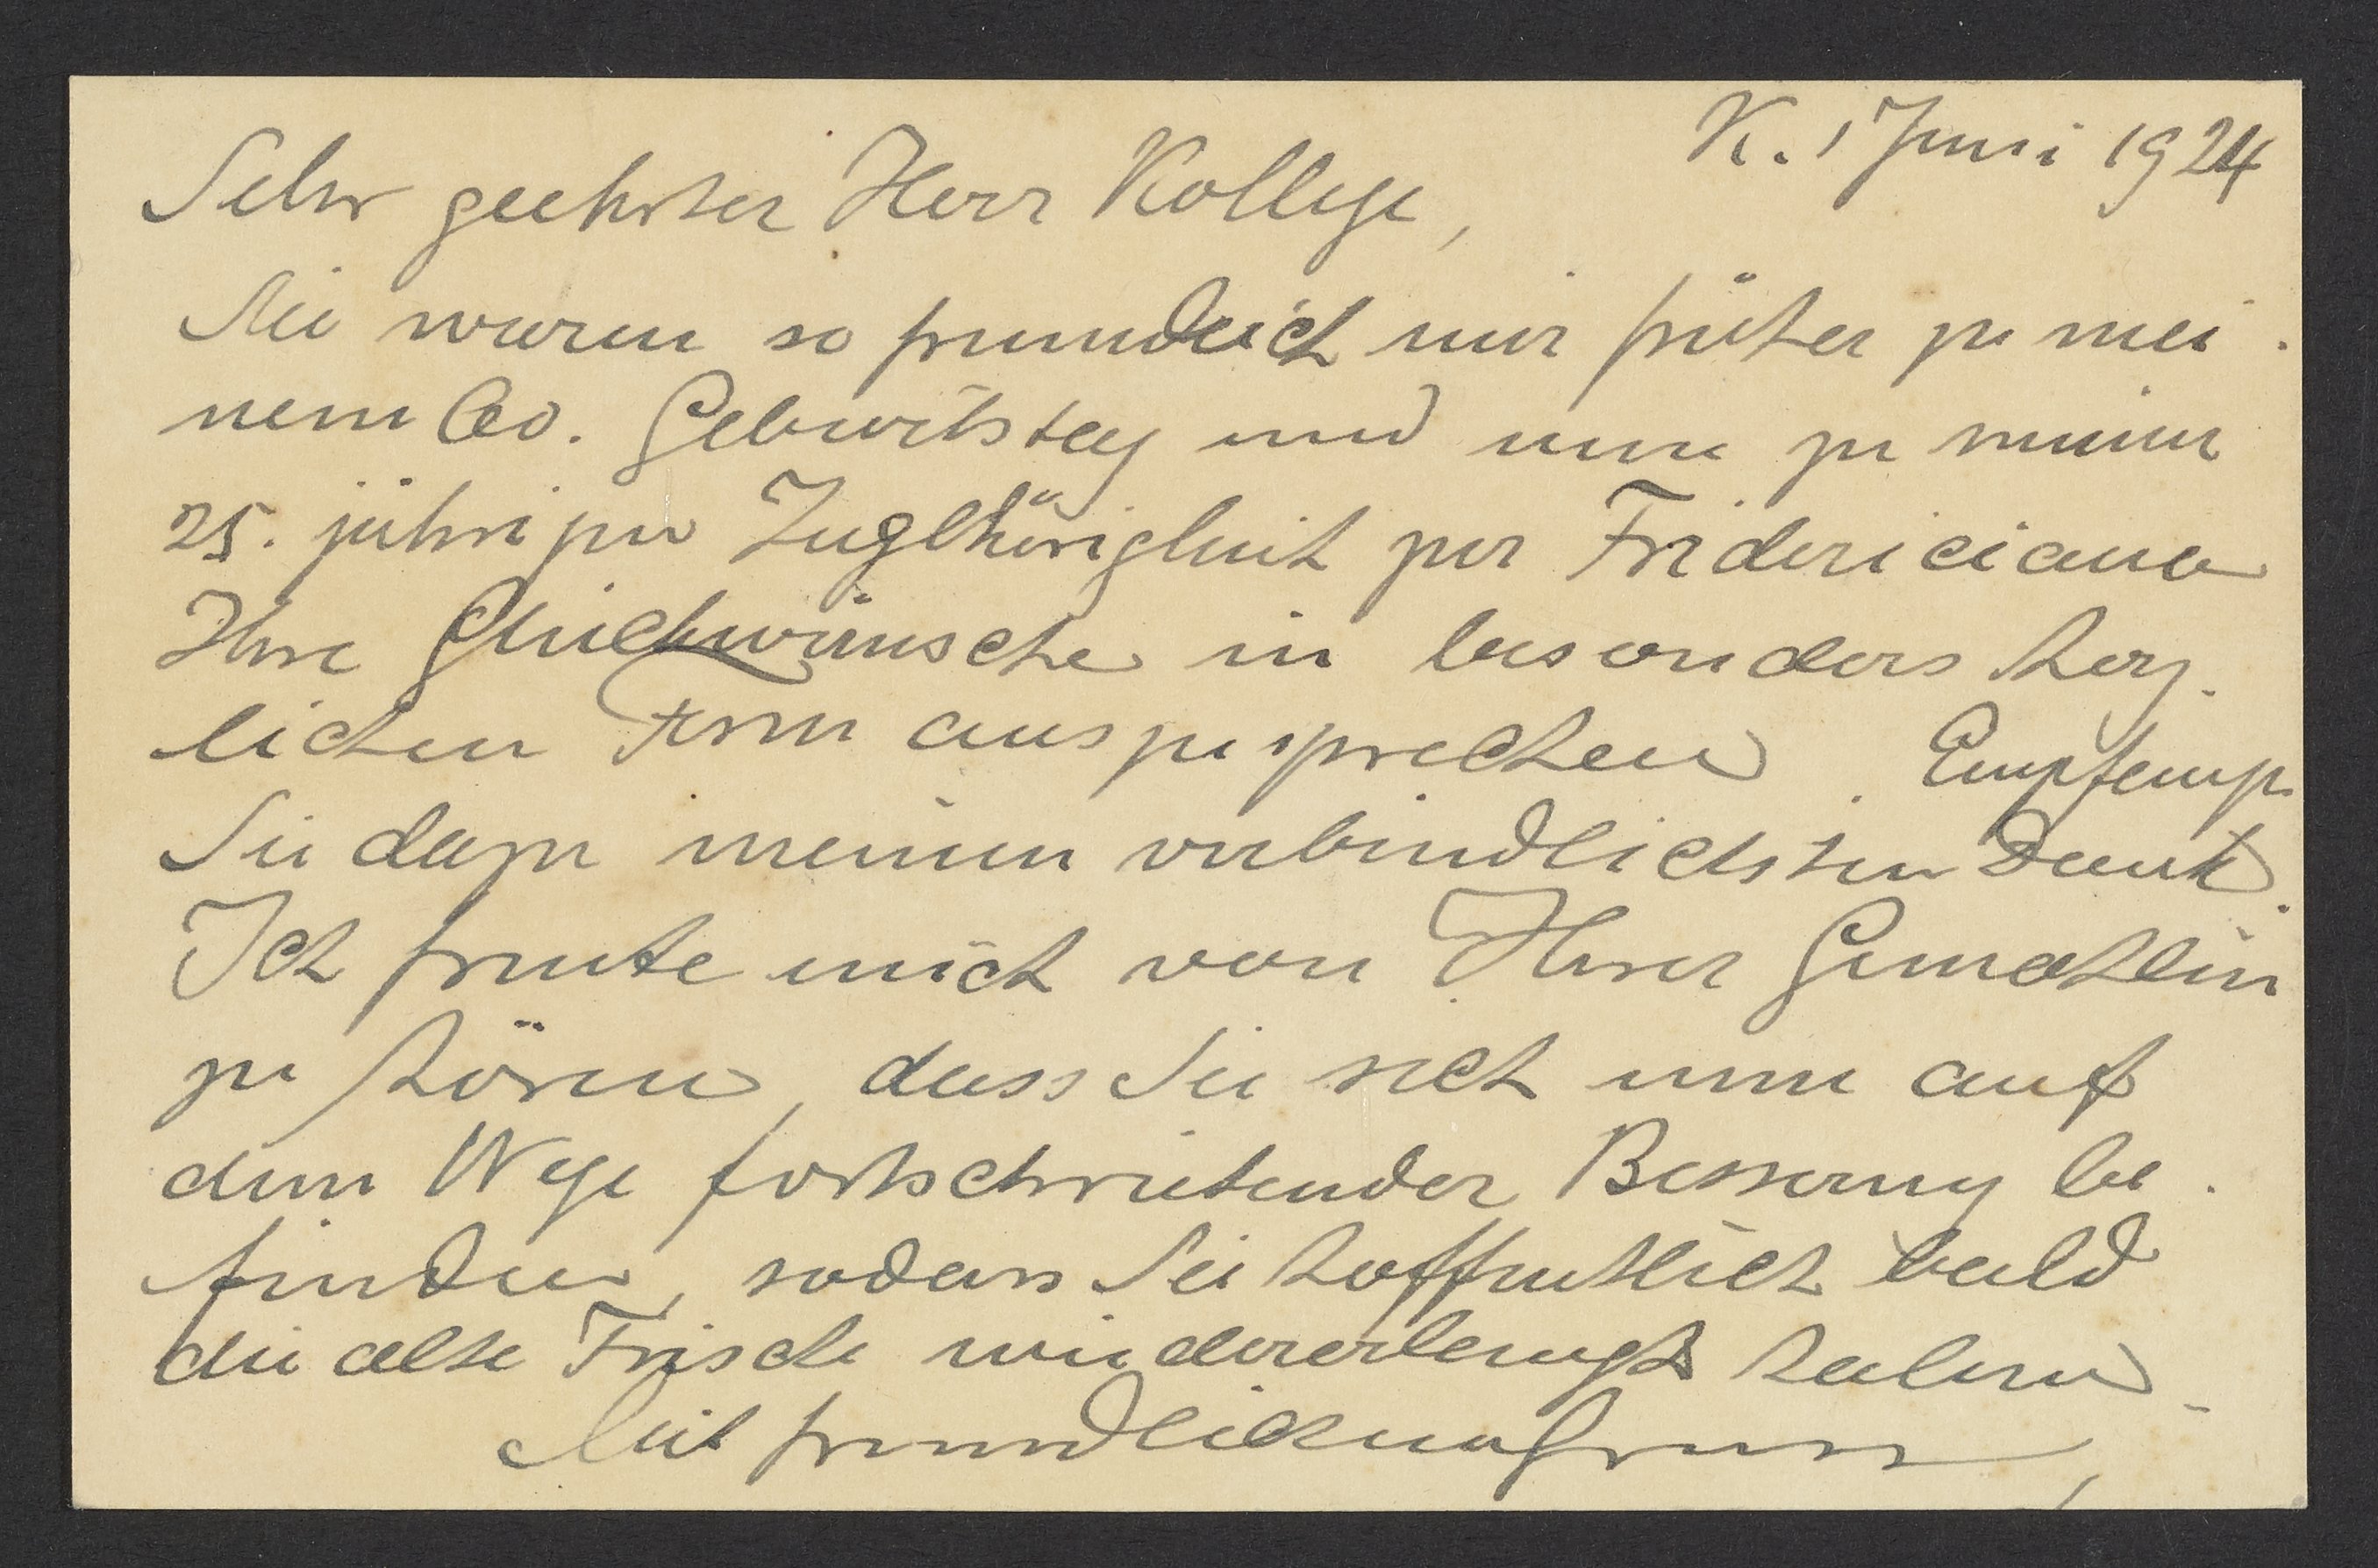 K. 1 Juni 1924
Sehr geehrter Herr Kollege,
Sie waren so freundlich mir früher zu mei-
nem 60. Geburtstag und nun zu meiner
25. jährigen Zugehörigkeit zur Fridericiana
Ihre Glückwünsche in besonders herz-
lichen Form auszusprechen. Empfang
Sie dazu meinen verbindlichsten Dank.
Ich freute mich von Ihrer Gemahlin
zu hören, dass Sie sich nun auf
dem Wege fortschreitender Besserung be-
finden, sodass Sie hoffentlich bald
die alte Frische wiedererlangt haben.
Mit freundlichem Gruss,